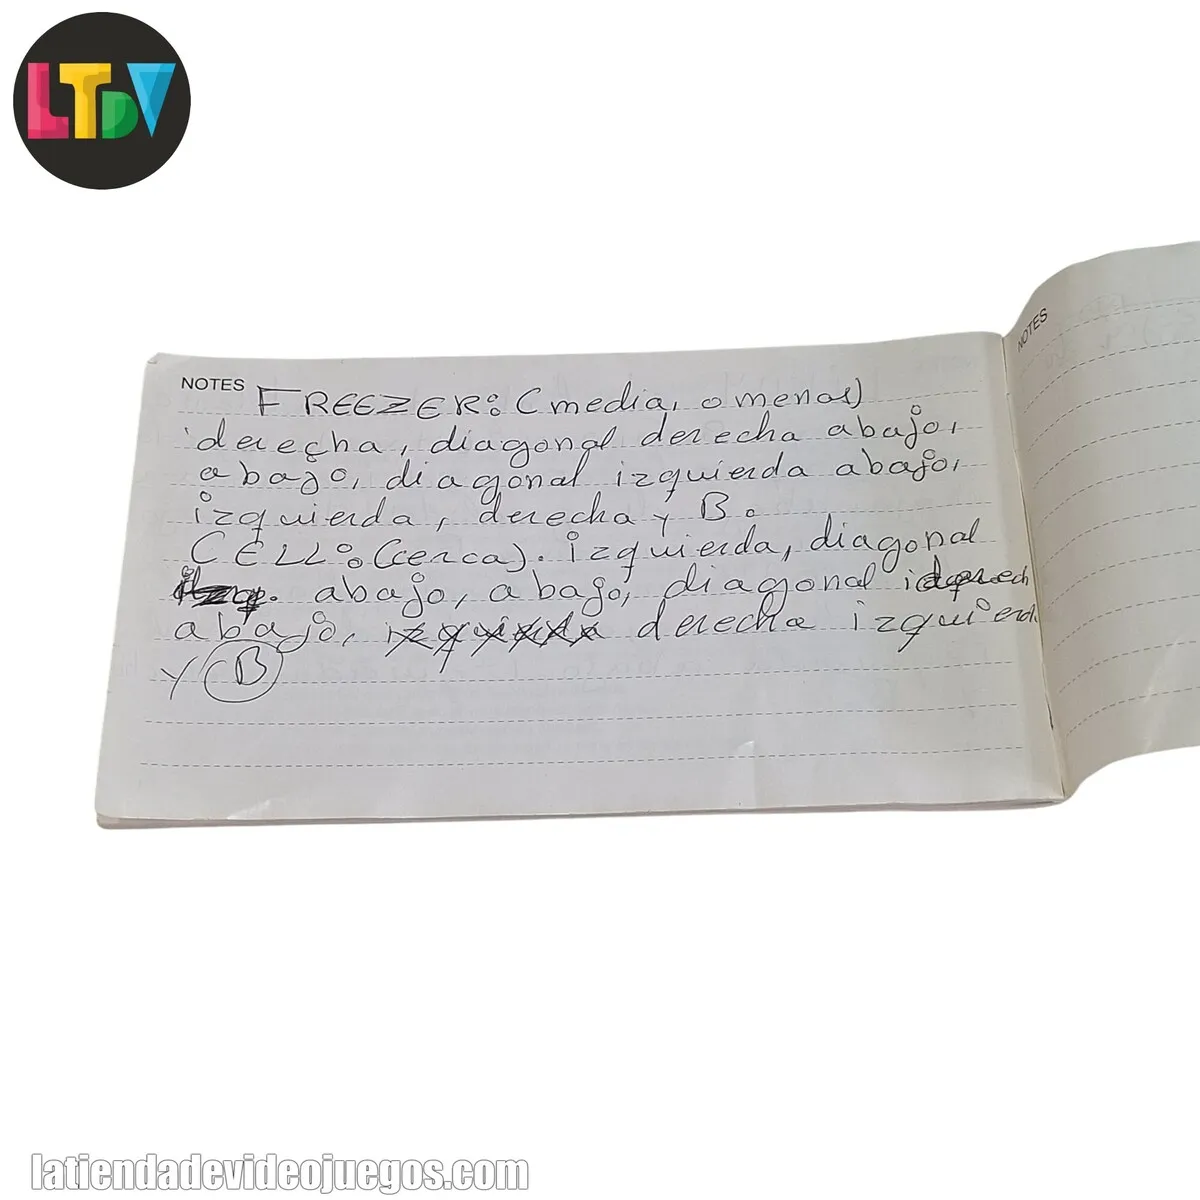 LTDV
NOTES
FREEZER: (media, o menos)
derecha, diagonal derecha abajo,
abajo, diagonal izquierda abajo,
izquierda, derecha y B.
CELL: (cerca). izquierda, diagonal
izq. abajo, abajo, diagonal derech
abajo, izquierda derecha izquierda
y B
NOTES
latiendadevideojuegos.com